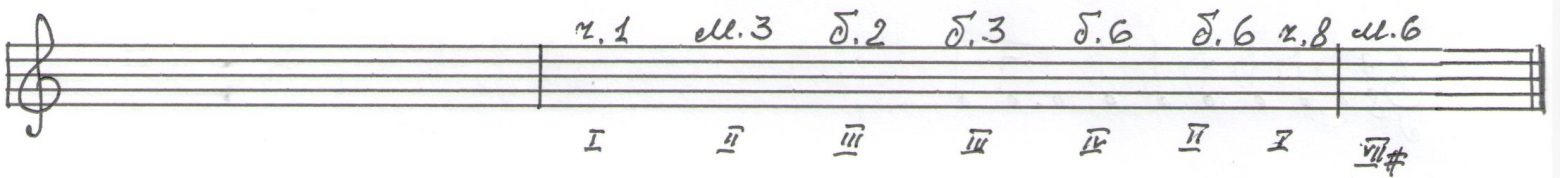 ч.1 м.3 б.2 б.3 б.6 б.6 ч.8 м.6
I II III III IV II I VII#